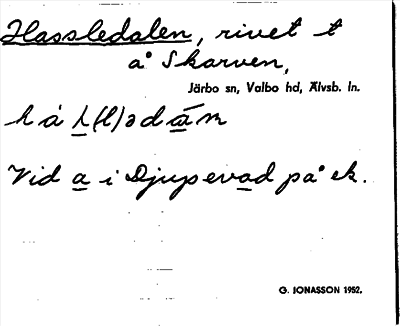 Hassledalen, rivet t
å Skarven,
Järbo sn, Valbo hd, Älvsb. ln.
Vid a i Djupevad på ek.
G. JONASSON 1952.